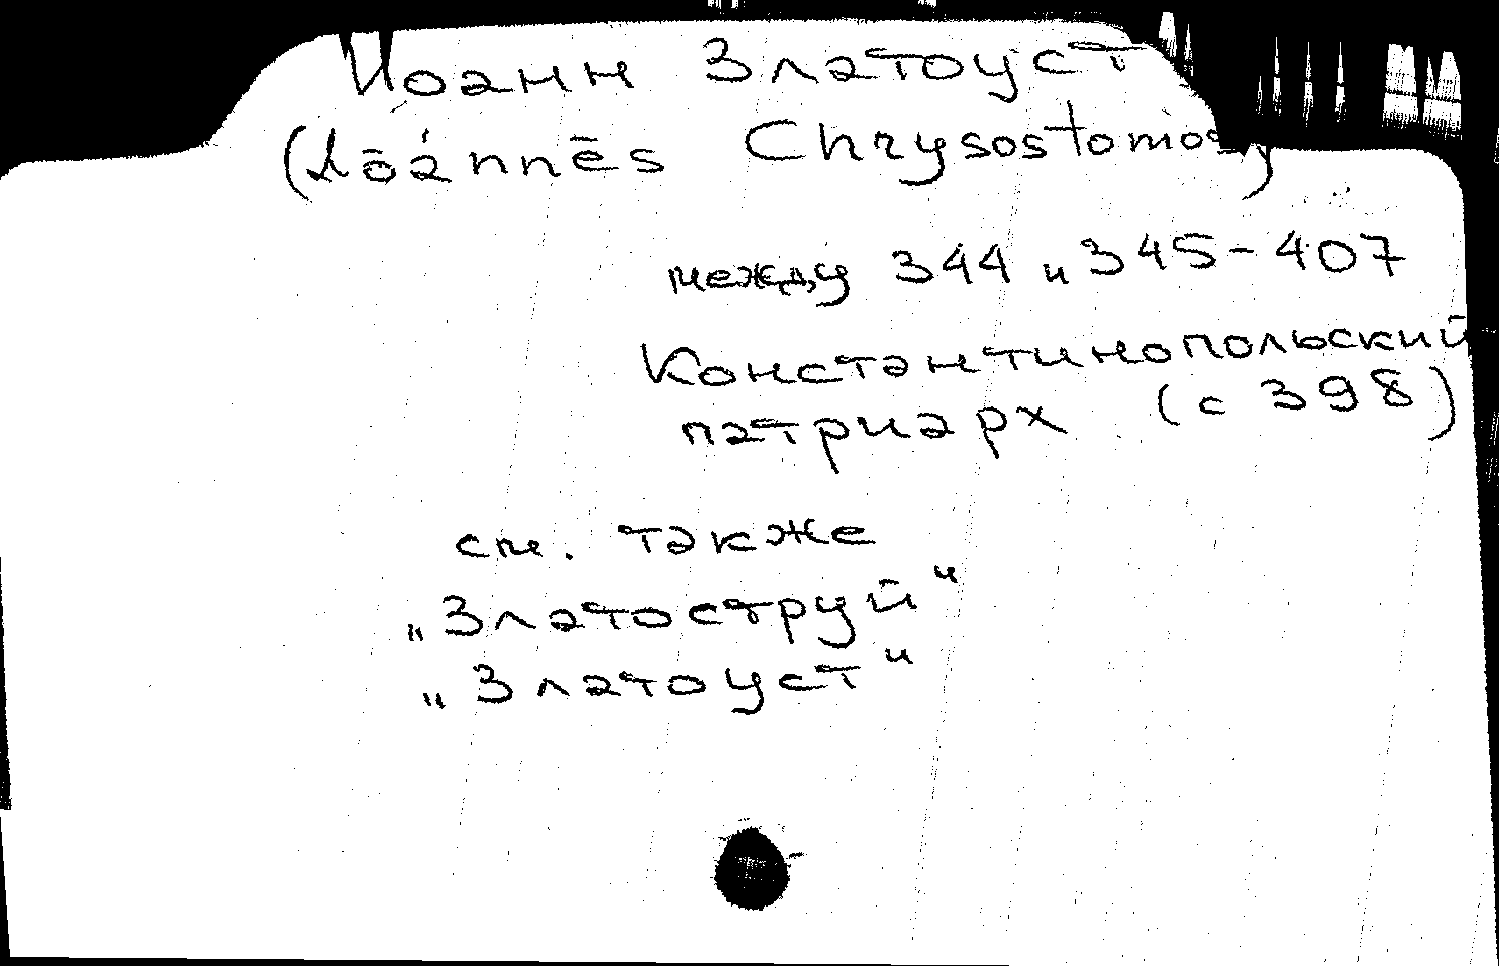 Иоанн Златоуст
(Iōánnēs Chrysostomos)
между 344 и 345-407
Константинопольский
патриарх (с 398)
см. также
„Златоструй“
„Златоуст“